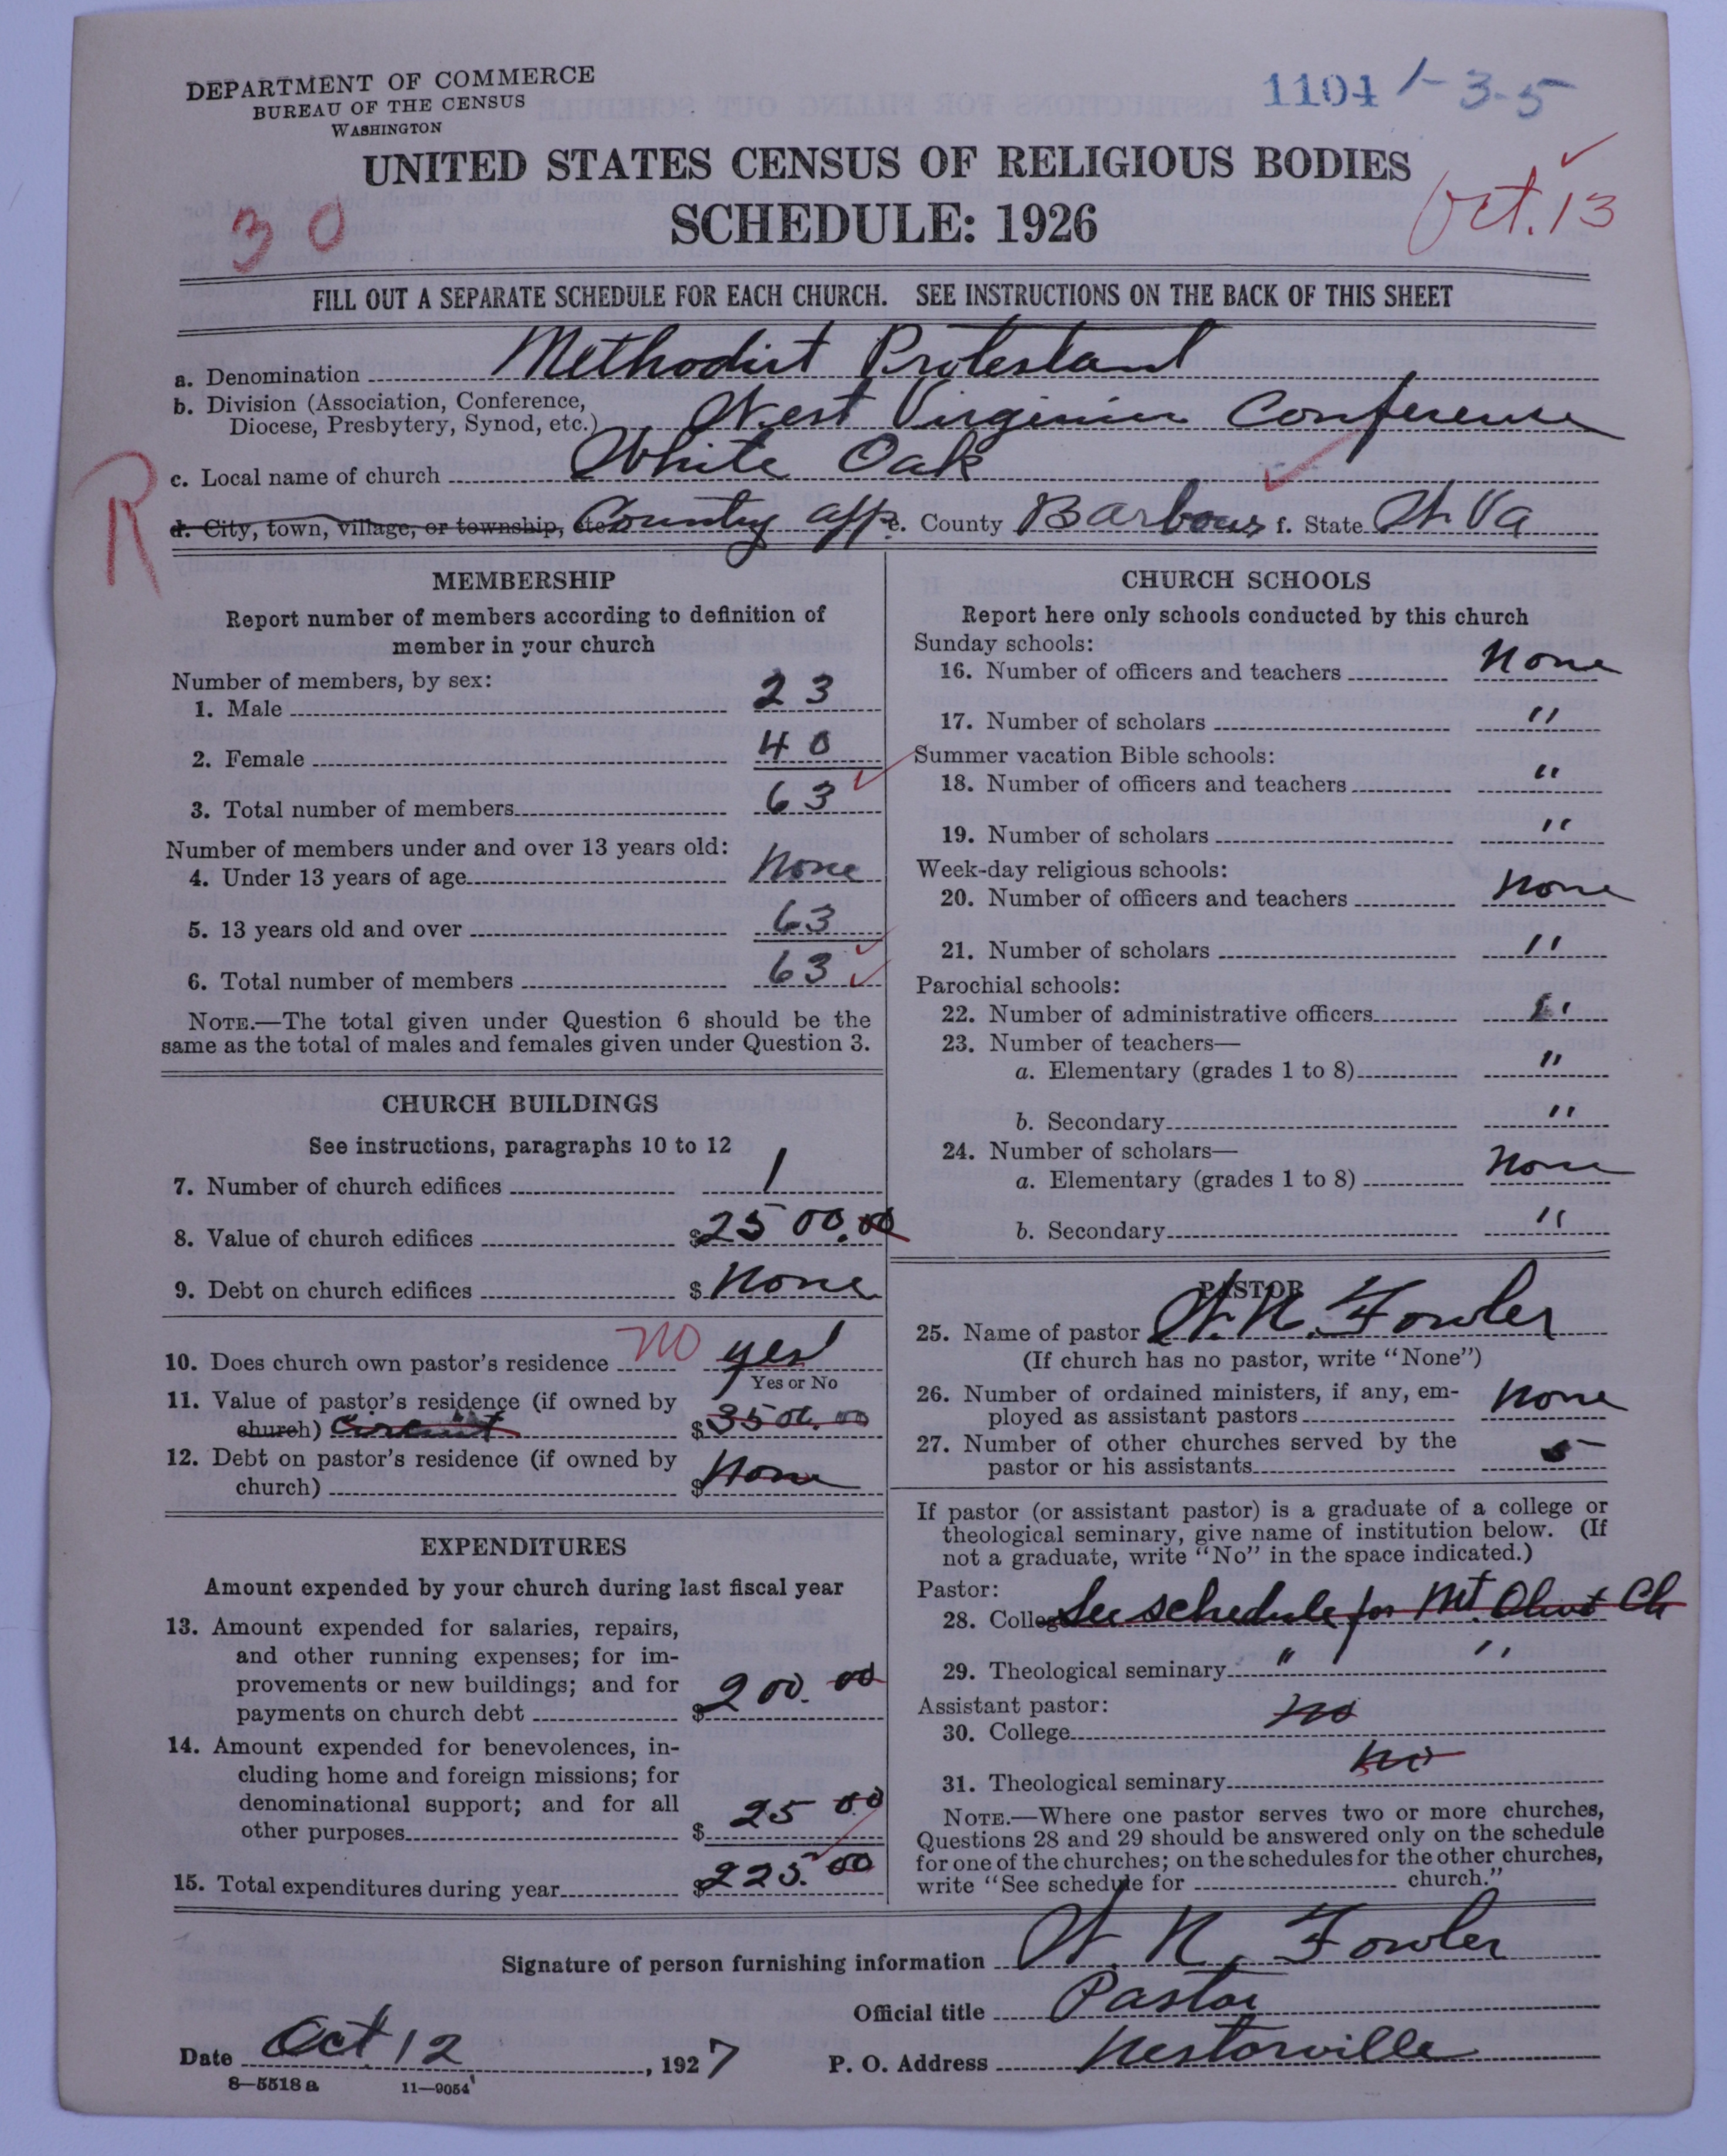 DEPARTMENT OF COMMERCE
BUREAU OF THE CENSUS
WASHINGTON
1104 1-3-5
UNITED STATES CENSUS OF RELIGIOUS BODIES
SCHEDULE: 1926
30
Oct. 13
FILL OUT A SEPARATE SCHEDULE FOR EACH CHURCH. SEE INSTRUCTIONS ON THE BACK OF THIS SHEET
a. Denomination Methodist Protestant
b. Division (Association, Conference,
Diocese, Presbytery, Synod, etc.) West Virginia Conference
c. Local name of church White Oak
R
d. City, town, village, or township, etc. Country app e. County Barbour f. State W. Va
MEMBERSHIP
Report number of members according to definition of
member in your church
Number of members, by sex:
1. Male 23
2. Female 40
3. Total number of members 63
Number of members under and over 13 years old:
4. Under 13 years of age None
5. 13 years old and over 63
6. Total number of members 63
NOTE.—The total given under Question 6 should be the
same as the total of males and females given under Question 3.
CHURCH BUILDINGS
See instructions, paragraphs 10 to 12
7. Number of church edifices 1
8. Value of church edifices $2500.00
9. Debt on church edifices $ None
10. Does church own pastor's residence no yes
Yes or No
11. Value of pastor's residence (if owned by
church) circuit $3500.00
12. Debt on pastor's residence (if owned by
church) $ None
EXPENDITURES
Amount expended by your church during last fiscal year
13. Amount expended for salaries, repairs,
and other running expenses; for im-
provements or new buildings; and for
payments on church debt $200.00
14. Amount expended for benevolences, in-
cluding home and foreign missions; for
denominational support; and for all
other purposes $ 25 00
15. Total expenditures during year $225.00
CHURCH SCHOOLS
Report here only schools conducted by this church
Sunday schools:
16. Number of officers and teachers None
17. Number of scholars "
Summer vacation Bible schools:
18. Number of officers and teachers "
19. Number of scholars "
Week-day religious schools:
20. Number of officers and teachers None
21. Number of scholars "
Parochial schools:
22. Number of administrative officers "
23. Number of teachers—
a. Elementary (grades 1 to 8) "
b. Secondary "
24. Number of scholars—
a. Elementary (grades 1 to 8) None
b. Secondary "
PASTOR
25. Name of pastor W. N. Fowler
(If church has no pastor, write "None")
26. Number of ordained ministers, if any, em-
ployed as assistant pastors None
27. Number of other churches served by the
pastor or his assistants 5
If pastor (or assistant pastor) is a graduate of a college or
theological seminary, give name of institution below. (If
not a graduate, write "No" in the space indicated.)
Pastor:
28. College See schedule for Mt. Olivet Ch
29. Theological seminary " "
Assistant pastor:
30. College No
31. Theological seminary No
NOTE.—Where one pastor serves two or more churches,
Questions 28 and 29 should be answered only on the schedule
for one of the churches; on the schedules for the other churches,
write "See schedule for church."
Signature of person furnishing information W. N. Fowler
Official title Pastor
Date Oct 12, 1927 P. O. Address Nestorville
8—5518a 11—9054